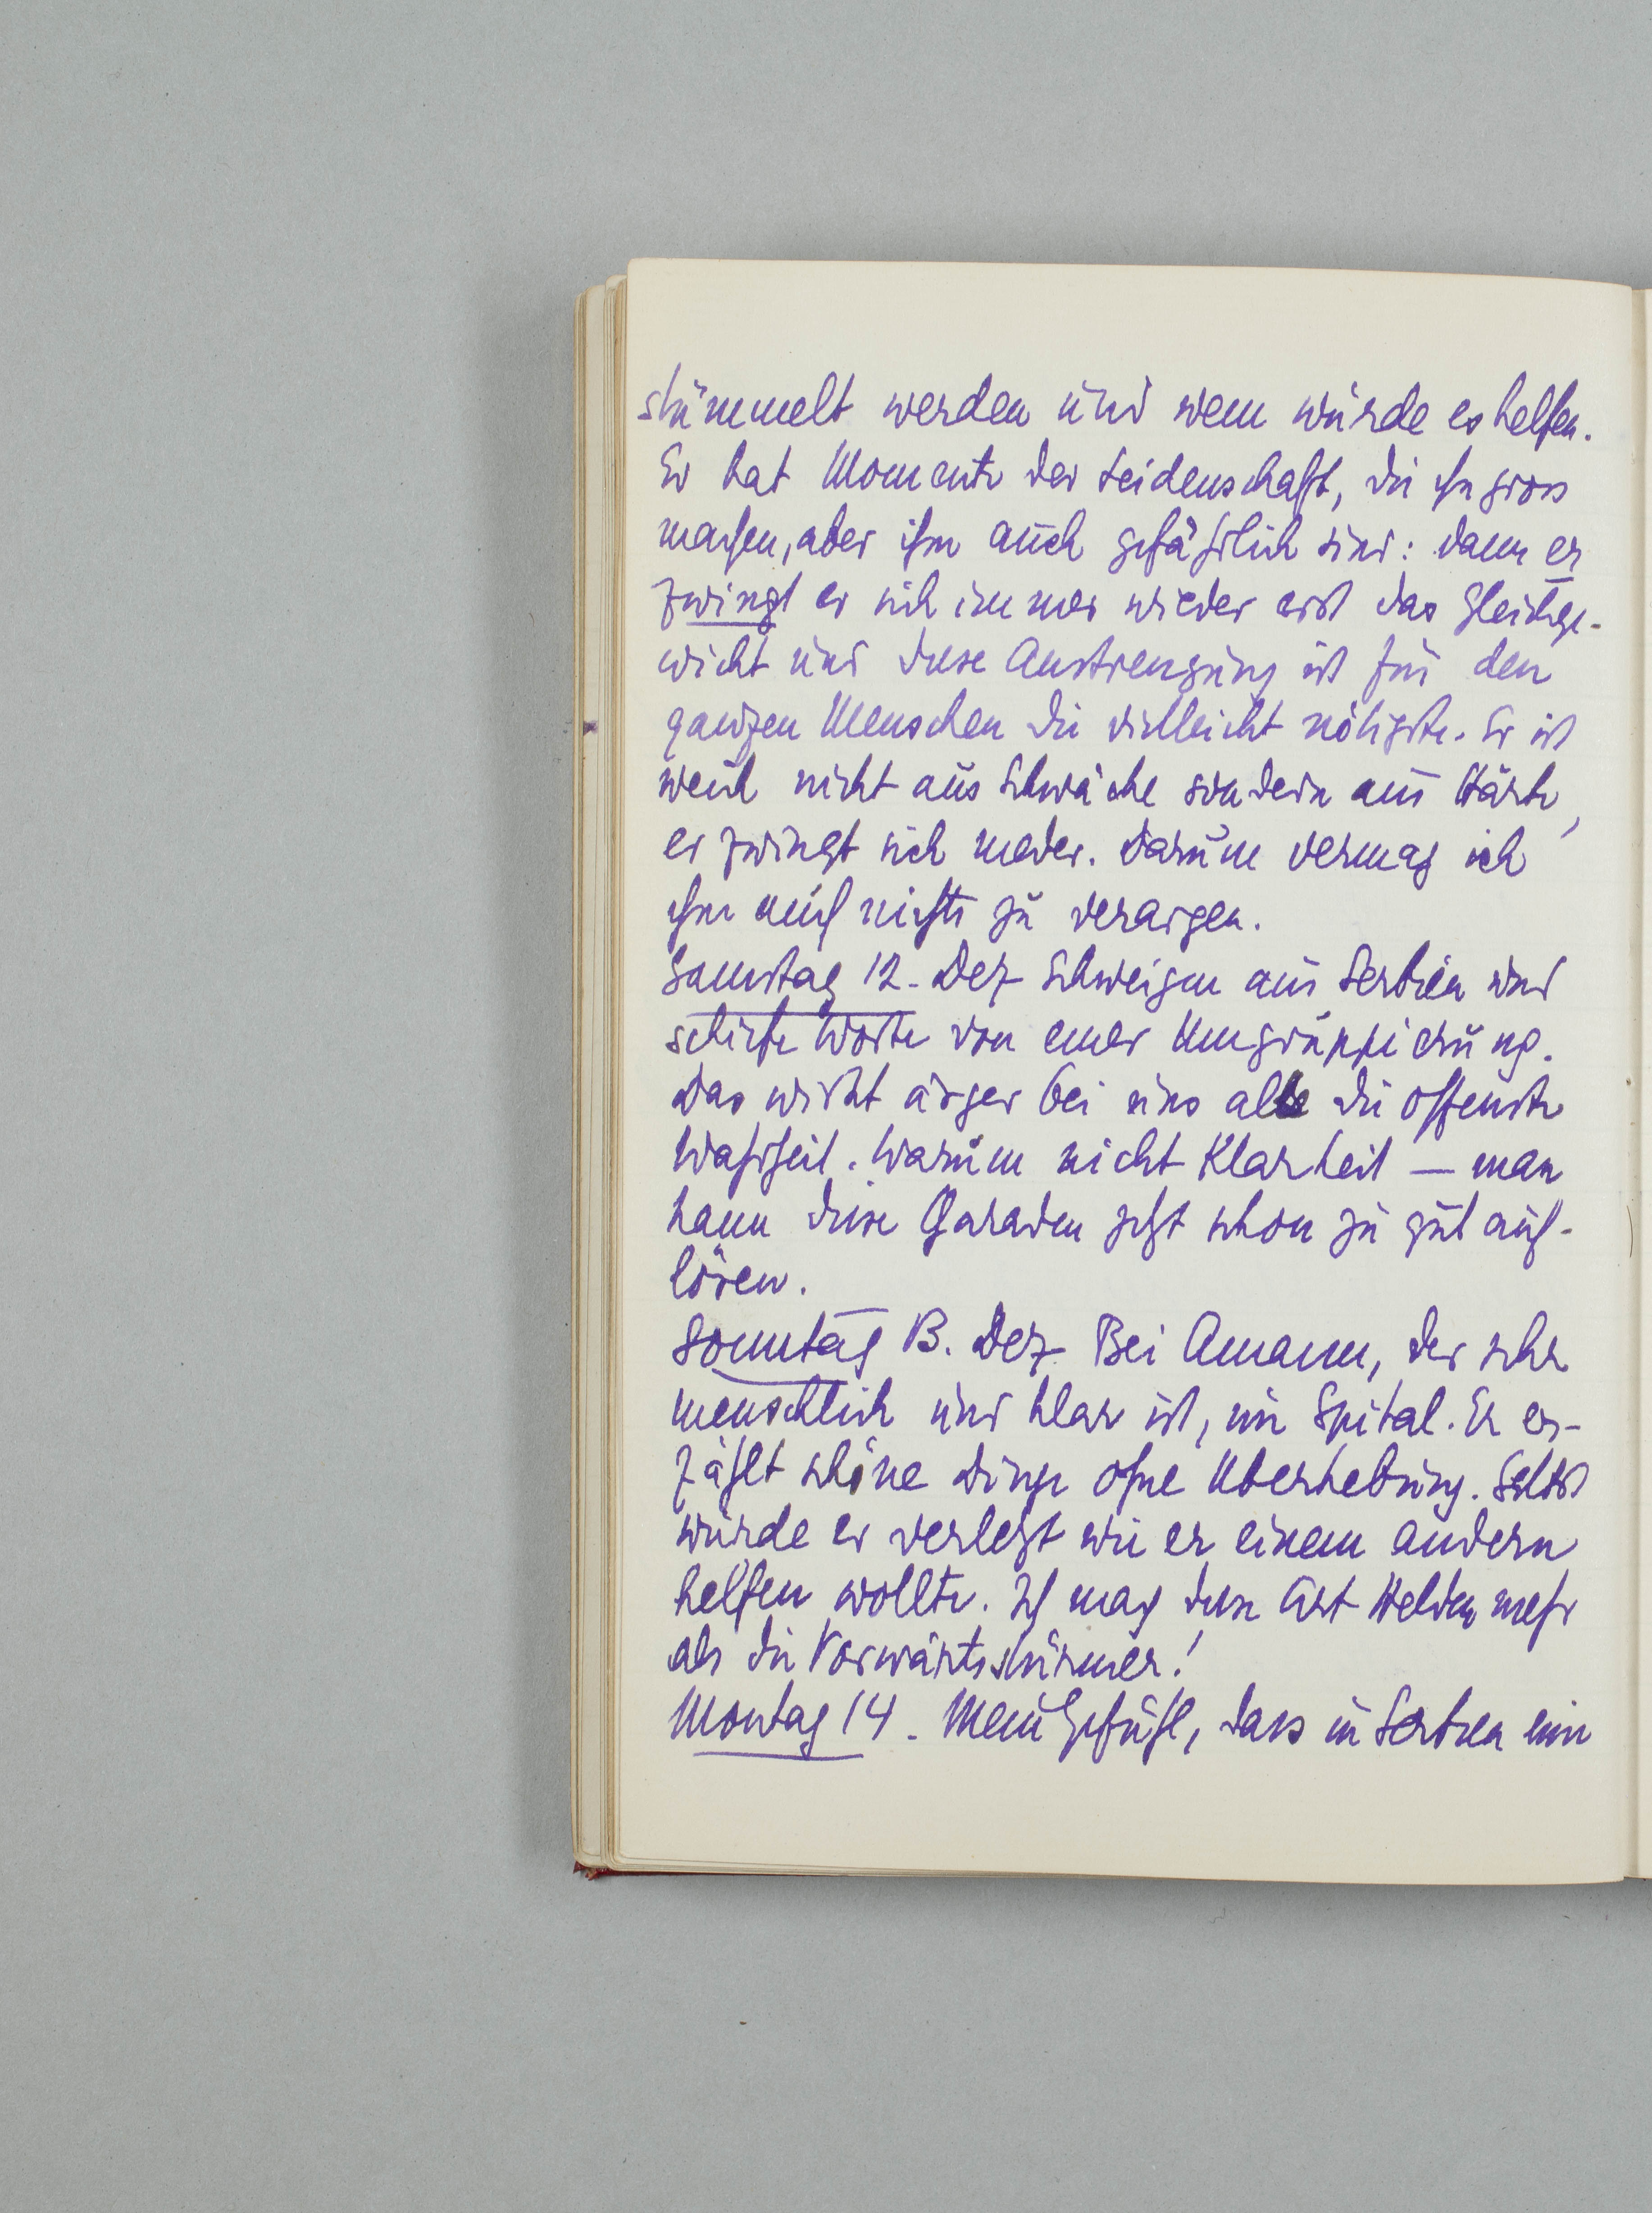 stümmelt werden und wem würde es helfen.
Er hat Momente der Leidenschaft, die ihn gross
machen, aber ihm auch gefährlich sind: dann er
zwingt er sich immer wieder erst das Gleichge-
wicht und diese Anstrengung ist für den
ganzen Menschen die vielleicht nötigste. Er ist
weich nicht aus Schwäche sondern aus Härte,
er zwingt sich nieder. Darum vermag ich
ihm auch nichts zu verargen.
Samstag 12. Dez Schweigen aus Serbien und
schiefe Worte von einer Umgruppierung.
Das wirkt ärger bei uns als die offenste
Wahrheit. Warum nicht Klarheit — man
kann diese Charaden jetzt schon zu gut auf-
lösen.
Sonntag 13. Dez Bei Amann, der sehr
menschlich und klar ist, im Spital. Er er-
zählt schöne Dinge ohne Überhebung. Selbst
wurde er verletzt wie er einem andern
helfen wollte. Ich mag diese Art Helden mehr
als die Vorwärtsstürmer!
Montag 14. Mein Gefühl, dass in Serbien eine